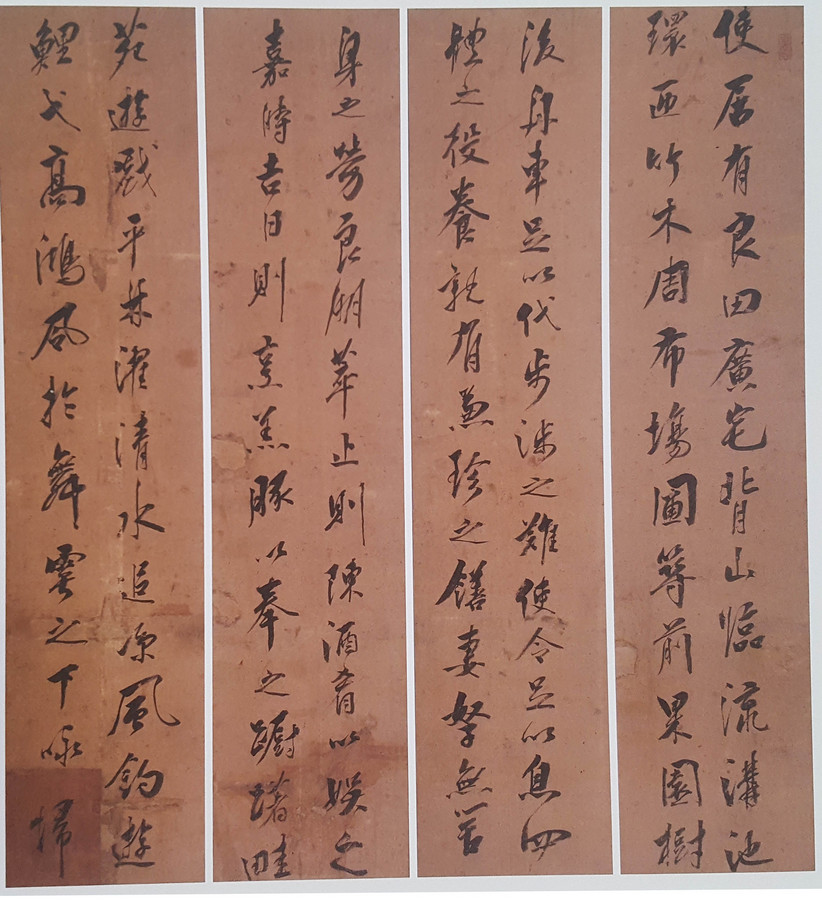 使居有良田廣宅背山臨流溝池
環匝竹木周布塲圃築前果園樹
後舟車足以代步涉之難使令足以息四
體之役養親有兼珍之饍妻孥無苦
身之勞良朋萃止則陳酒肴以娛之
嘉時吉日則烹羔豚以奉之躕躇畦
苑遊戲平林濯清水追凉風釣遊
鯉弋高鴻風於舞雩之下咏歸